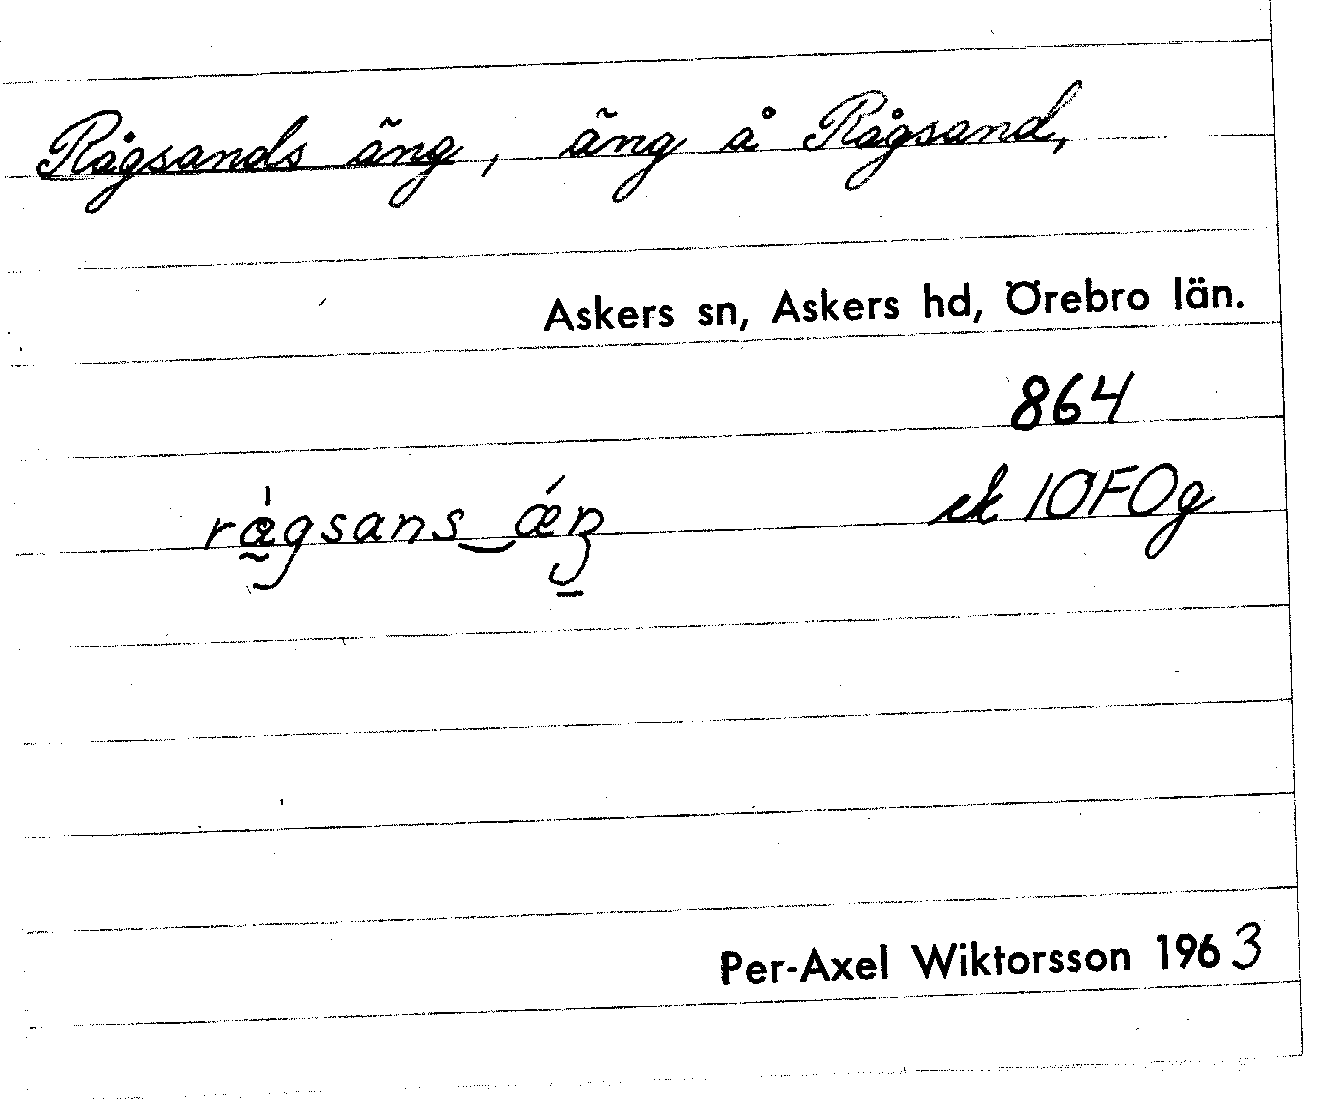 Rågsands äng, äng å Rågsand,
Askers sn, Askers hd, Örebro län.
864
rågsans æŋ ek 10F0g
Per-Axel Wiktorsson 1963